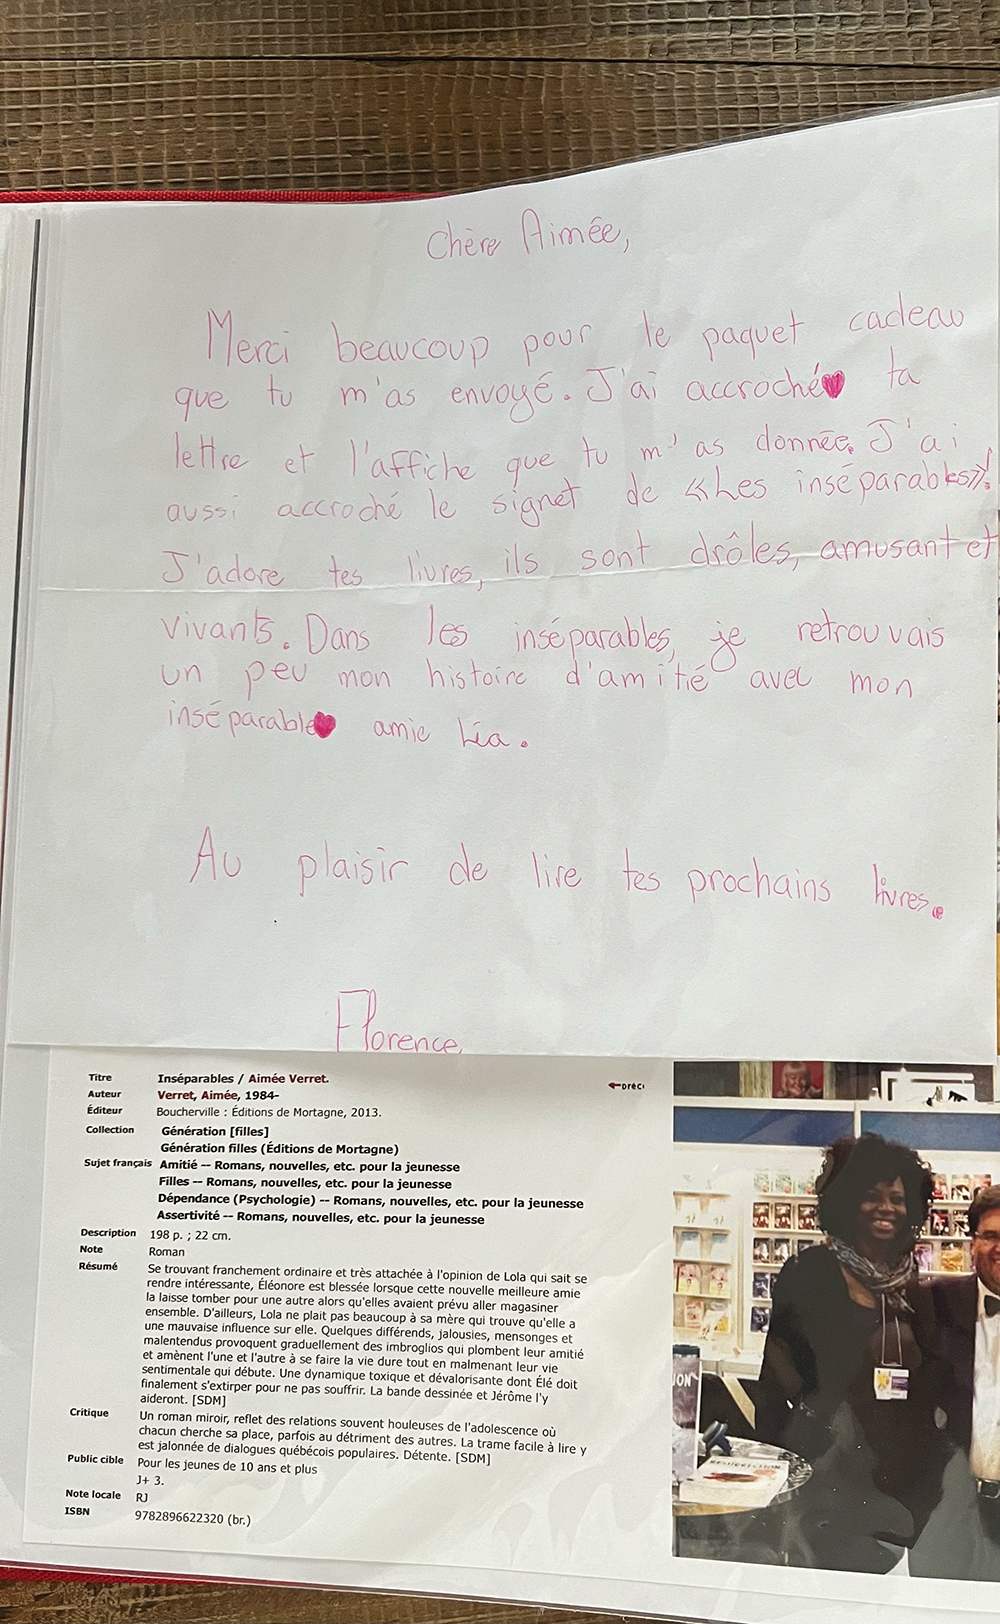 Chère Aimée,
Merci beaucoup pour le paquet cadeau
que tu m'as envoyé. J'ai accroché ta
lettre et l'affiche que tu m'as donnée. J'ai
aussi accroché le signet de «Les inséparables»!
J'adore tes livres, ils sont drôles, amusant et
vivants. Dans les inséparables, je retrouvais
un peu mon histoire d'amitié avec mon
inséparable amie Léa.
Au plaisir de lire tes prochains livres.
Florence
Titre Inséparables / Aimée Verret.
Auteur Verret, Aimée, 1984-
Éditeur Boucherville : Éditions de Mortagne, 2013.
Collection Génération [filles]
Génération filles (Éditions de Mortagne)
Sujet français Amitié -- Romans, nouvelles, etc. pour la jeunesse
Filles -- Romans, nouvelles, etc. pour la jeunesse
Dépendance (Psychologie) -- Romans, nouvelles, etc. pour la jeunesse
Assertivité -- Romans, nouvelles, etc. pour la jeunesse
Description 198 p. ; 22 cm.
Note Roman
Résumé Se trouvant franchement ordinaire et très attachée à l'opinion de Lola qui sait se
rendre intéressante, Éléonore est blessée lorsque cette nouvelle meilleure amie
la laisse tomber pour une autre alors qu'elles avaient prévu aller magasiner
ensemble. D'ailleurs, Lola ne plait pas beaucoup à sa mère qui trouve qu'elle a
une mauvaise influence sur elle. Quelques différends, jalousies, mensonges et
malentendus provoquent graduellement des imbroglios qui plombent leur amitié
et amènent l'une et l'autre à se faire la vie dure tout en malmenant leur vie
sentimentale qui débute. Une dynamique toxique et dévalorisante dont Élé doit
finalement s'extirper pour ne pas souffrir. La bande dessinée et Jérôme l'y
aideront. [SDM]
Critique Un roman miroir, reflet des relations souvent houleuses de l'adolescence où
chacun cherche sa place, parfois au détriment des autres. La trame facile à lire y
est jalonnée de dialogues québécois populaires. Détente. [SDM]
Public cible Pour les jeunes de 10 ans et plus
J+ 3.
Note locale RJ
ISBN 9782896622320 (br.)